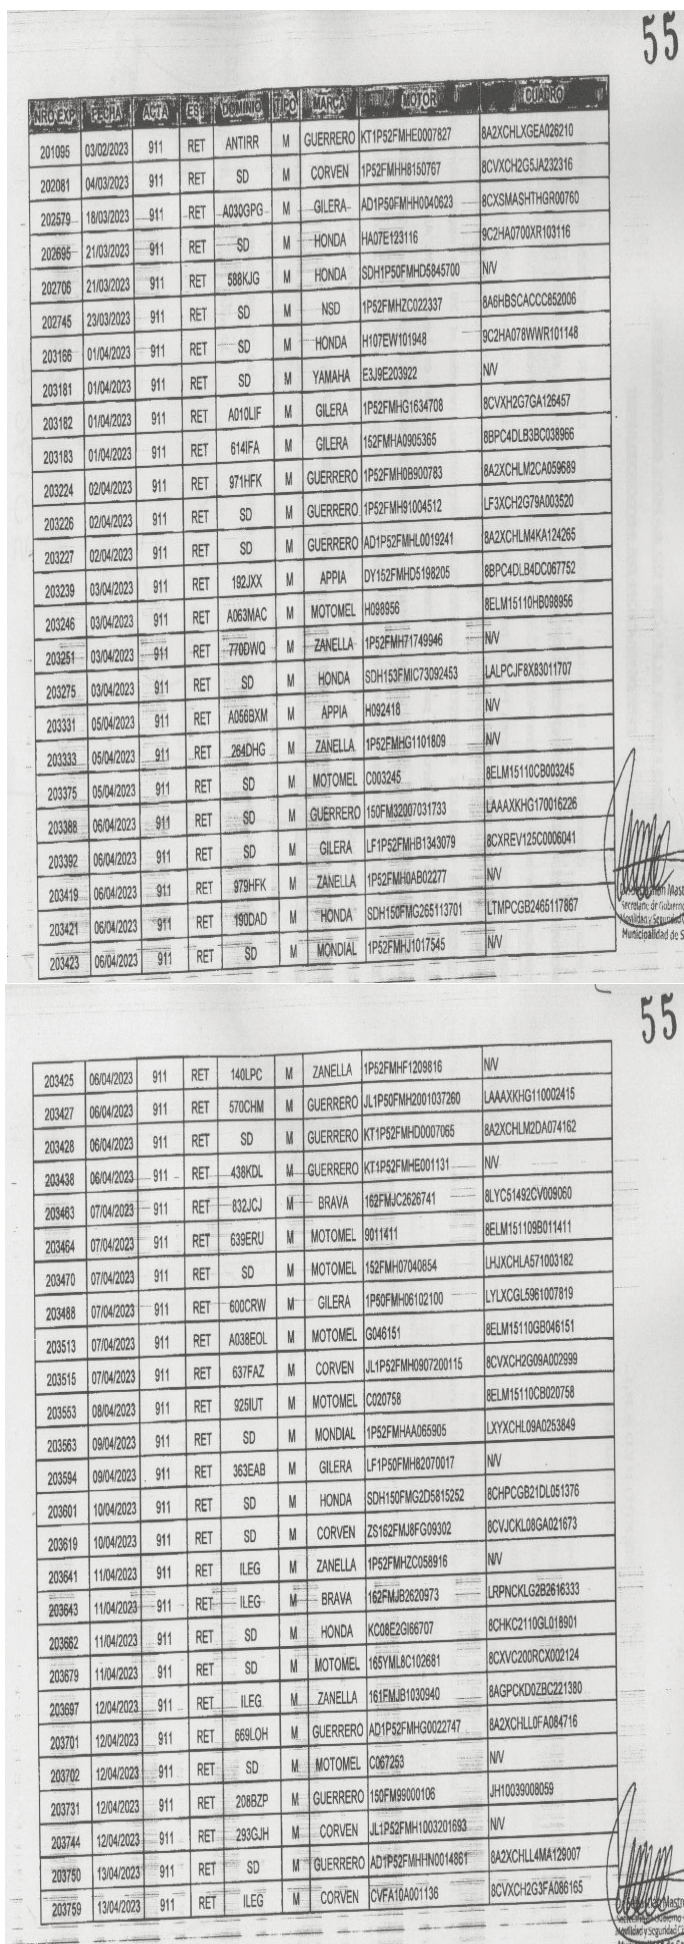 55
NRO.EXP FECHA ACTA EST DOMINIO TIPO MARCA MOTOR CUADRO
201095 03/02/2023 911 RET ANTIRR M GUERRERO KT1P52FMHE0007827 8A2XCHLXGEA026210
202081 04/03/2023 911 RET SD M CORVEN 1P52FMHH8150767 8CVXCH2G5JA232316
202579 18/03/2023 911 RET A030GPG M GILERA AD1P50FMHH0040623 8CXSMASHTHGR00760
202695 21/03/2023 911 RET SD M HONDA HA07E123116 9C2HA0700XR103116
202706 21/03/2023 911 RET 588KJG M HONDA SDH1P50FMHD5845700 N/V
202745 23/03/2023 911 RET SD M NSD 1P52FMHZC022337 8A6HBSCACCC852006
203166 01/04/2023 911 RET SD M HONDA H107EW101948 9C2HA078WWR101148
203181 01/04/2023 911 RET SD M YAMAHA E3J9E203922 N/V
203182 01/04/2023 911 RET A010LIF M GILERA 1P52FMHG1634708 8CVXH2G7GA126457
203183 01/04/2023 911 RET 614IFA M GILERA 152FMHA0905365 8BPC4DLB3BC038966
203224 02/04/2023 911 RET 971HFK M GUERRERO 1P52FMH0B900783 8A2XCHLM2CA059689
203226 02/04/2023 911 RET SD M GUERRERO 1P52FMH91004512 LF3XCH2G79A003520
203227 02/04/2023 911 RET SD M GUERRERO AD1P52FMHL0019241 8A2XCHLM4KA124265
203239 03/04/2023 911 RET 192JXX M APPIA DY152FMHD5198205 8BPC4DLB4DC067752
203246 03/04/2023 911 RET A063MAC M MOTOMEL H098956 8ELM15110HB098956
203251 03/04/2023 911 RET 770DWQ M ZANELLA 1P52FMH71749946 N/V
203275 03/04/2023 911 RET SD M HONDA SDH153FMIC73092453 LALPCJF8X83011707
203331 05/04/2023 911 RET A056BXM M APPIA H092418 N/V
203333 05/04/2023 911 RET 264DHG M ZANELLA 1P52FMHG1101809 N/V
203375 05/04/2023 911 RET SD M MOTOMEL C003245 8ELM15110CB003245
203388 06/04/2023 911 RET SD M GUERRERO 150FM32007031733 LAAAXKHG170016226
203392 06/04/2023 911 RET SD M GILERA LF1P52FMHB1343079 8CXREV125C0006041
203419 06/04/2023 911 RET 979HFK M ZANELLA 1P52FMH0AB02277 N/V
203421 06/04/2023 911 RET 190DAD M HONDA SDH150FMG265113701 LTMPCGB2465117867
203423 06/04/2023 911 RET SD M MONDIAL 1P52FMHJ1017545 N/V
Mast
Secretario de Gobierno
Movilidad y Seguridad
Municipalidad de S
55
203425 06/04/2023 911 RET 140LPC M ZANELLA 1P52FMHF1209816 N/V
203427 06/04/2023 911 RET 570CHM M GUERRERO JL1P50FMH2001037260 LAAAXKHG110002415
203428 06/04/2023 911 RET SD M GUERRERO KT1P52FMHD0007065 8A2XCHLM2DA074162
203438 06/04/2023 911 RET 438KDL M GUERRERO KT1P52FMHE001131 N/V
203463 07/04/2023 911 RET 832JCJ M BRAVA 162FMJC2626741 8LYC51492CV009060
203464 07/04/2023 911 RET 639ERU M MOTOMEL 9011411 8ELM151109B011411
203470 07/04/2023 911 RET SD M MOTOMEL 152FMH07040854 LHJXCHLA571003182
203488 07/04/2023 911 RET 600CRW M GILERA 1P50FMH06102100 LYLXCGL5961007819
203513 07/04/2023 911 RET A038EOL M MOTOMEL G046151 8ELM15110GB046151
203515 07/04/2023 911 RET 637FAZ M CORVEN JL1P52FMH0907200115 8CVXCH2G09A002999
203553 08/04/2023 911 RET 925IUT M MOTOMEL C020758 8ELM15110CB020758
203563 09/04/2023 911 RET SD M MONDIAL 1P52FMHAA065905 LXYXCHL09A0253849
203594 09/04/2023 911 RET 363EAB M GILERA LF1P50FMH82070017 N/V
203601 10/04/2023 911 RET SD M HONDA SDH150FMG2D5815252 8CHPCGB21DL051376
203619 10/04/2023 911 RET SD M CORVEN ZS162FMJ8FG09302 8CVJCKL08GA021673
203641 11/04/2023 911 RET ILEG M ZANELLA 1P52FMHZC058916 N/V
203643 11/04/2023 911 RET ILEG M BRAVA 162FMJB2620973 LRPNCKLG2B2616333
203662 11/04/2023 911 RET SD M HONDA KC08E2GI66707 8CHKC2110GL018901
203679 11/04/2023 911 RET SD M MOTOMEL 165YML8C102681 8CXVC200RCX002124
203697 12/04/2023 911 RET ILEG M ZANELLA 161FMJB1030940 8AGPCKD0ZBC221380
203701 12/04/2023 911 RET 669LOH M GUERRERO AD1P52FMHG0022747 8A2XCHLL0FA084716
203702 12/04/2023 911 RET SD M MOTOMEL C067253 N/V
203731 12/04/2023 911 RET 208BZP M GUERRERO 150FM99000106 JH10039008059
203744 12/04/2023 911 RET 293GJH M CORVEN JL1P52FMH1003201693 N/V
203750 13/04/2023 911 RET SD M GUERRERO AD1P52FMHHN0014861 8A2XCHLL4MA129007
203759 13/04/2023 911 RET ILEG M CORVEN CVFA10A001136 8CVXCH2G3FA086165
Mastro
Movilidad y Seguridad Ci